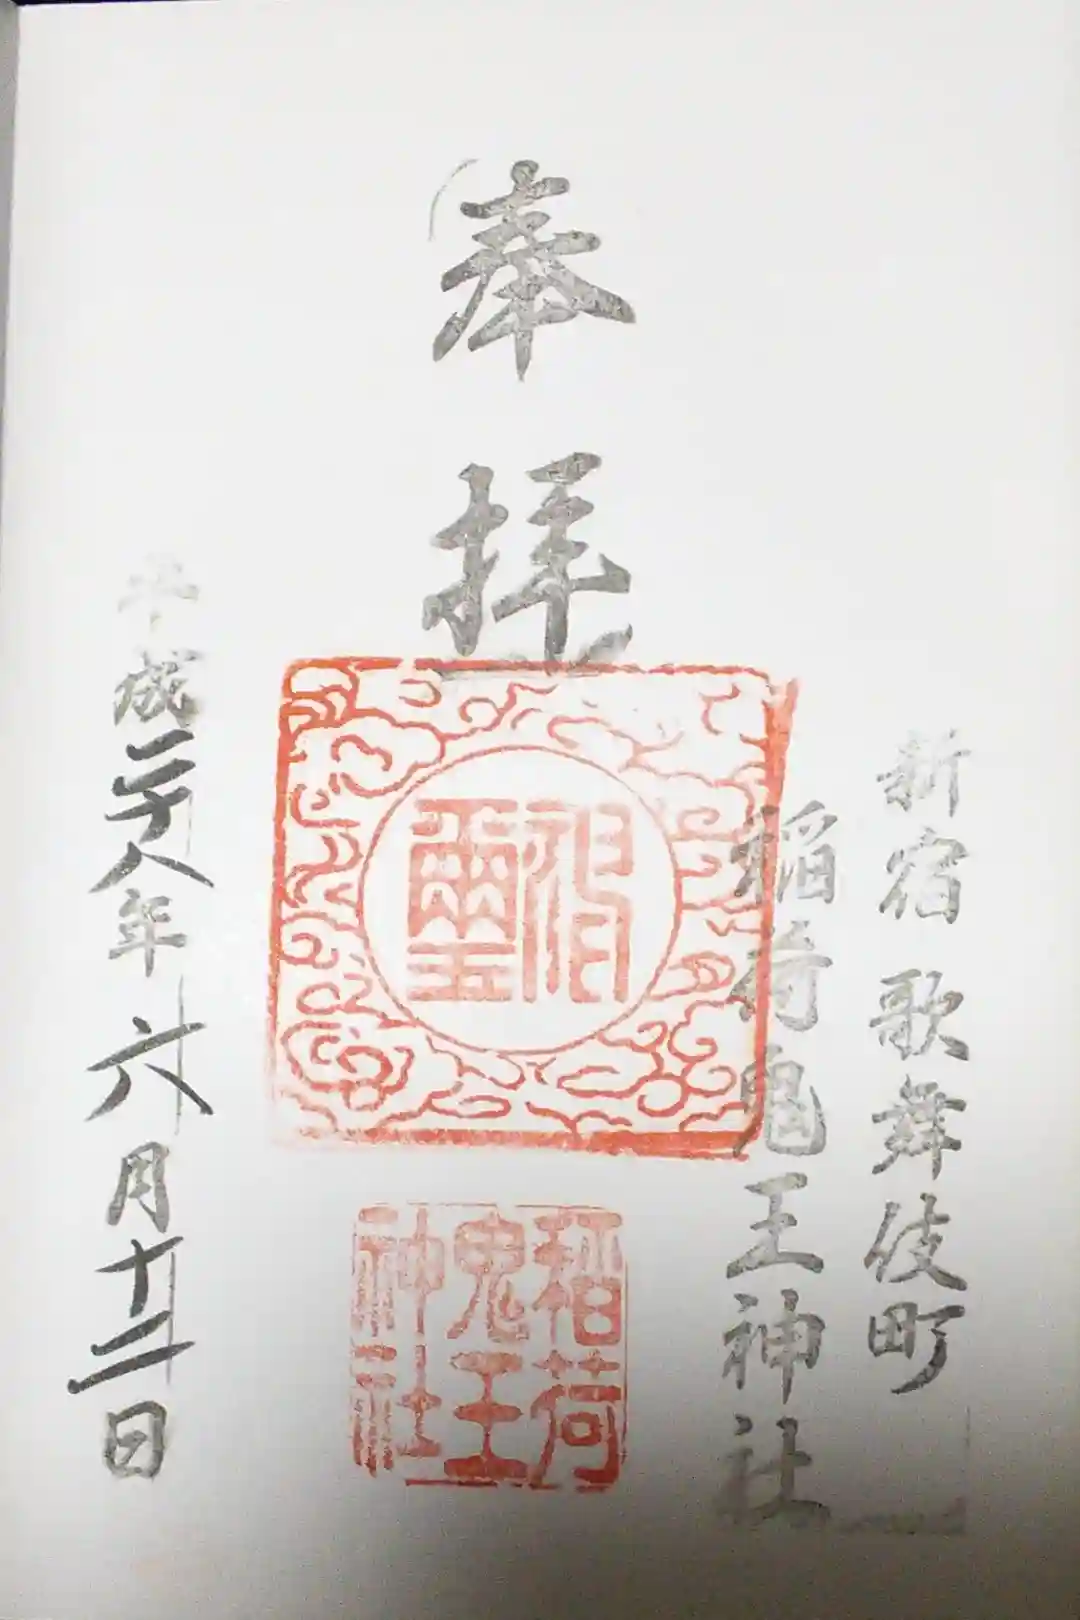 新宿 歌舞伎町
稲荷鬼王神社
奉拝
神璽
稲荷
鬼王
神社
平成二十八年六月十二日